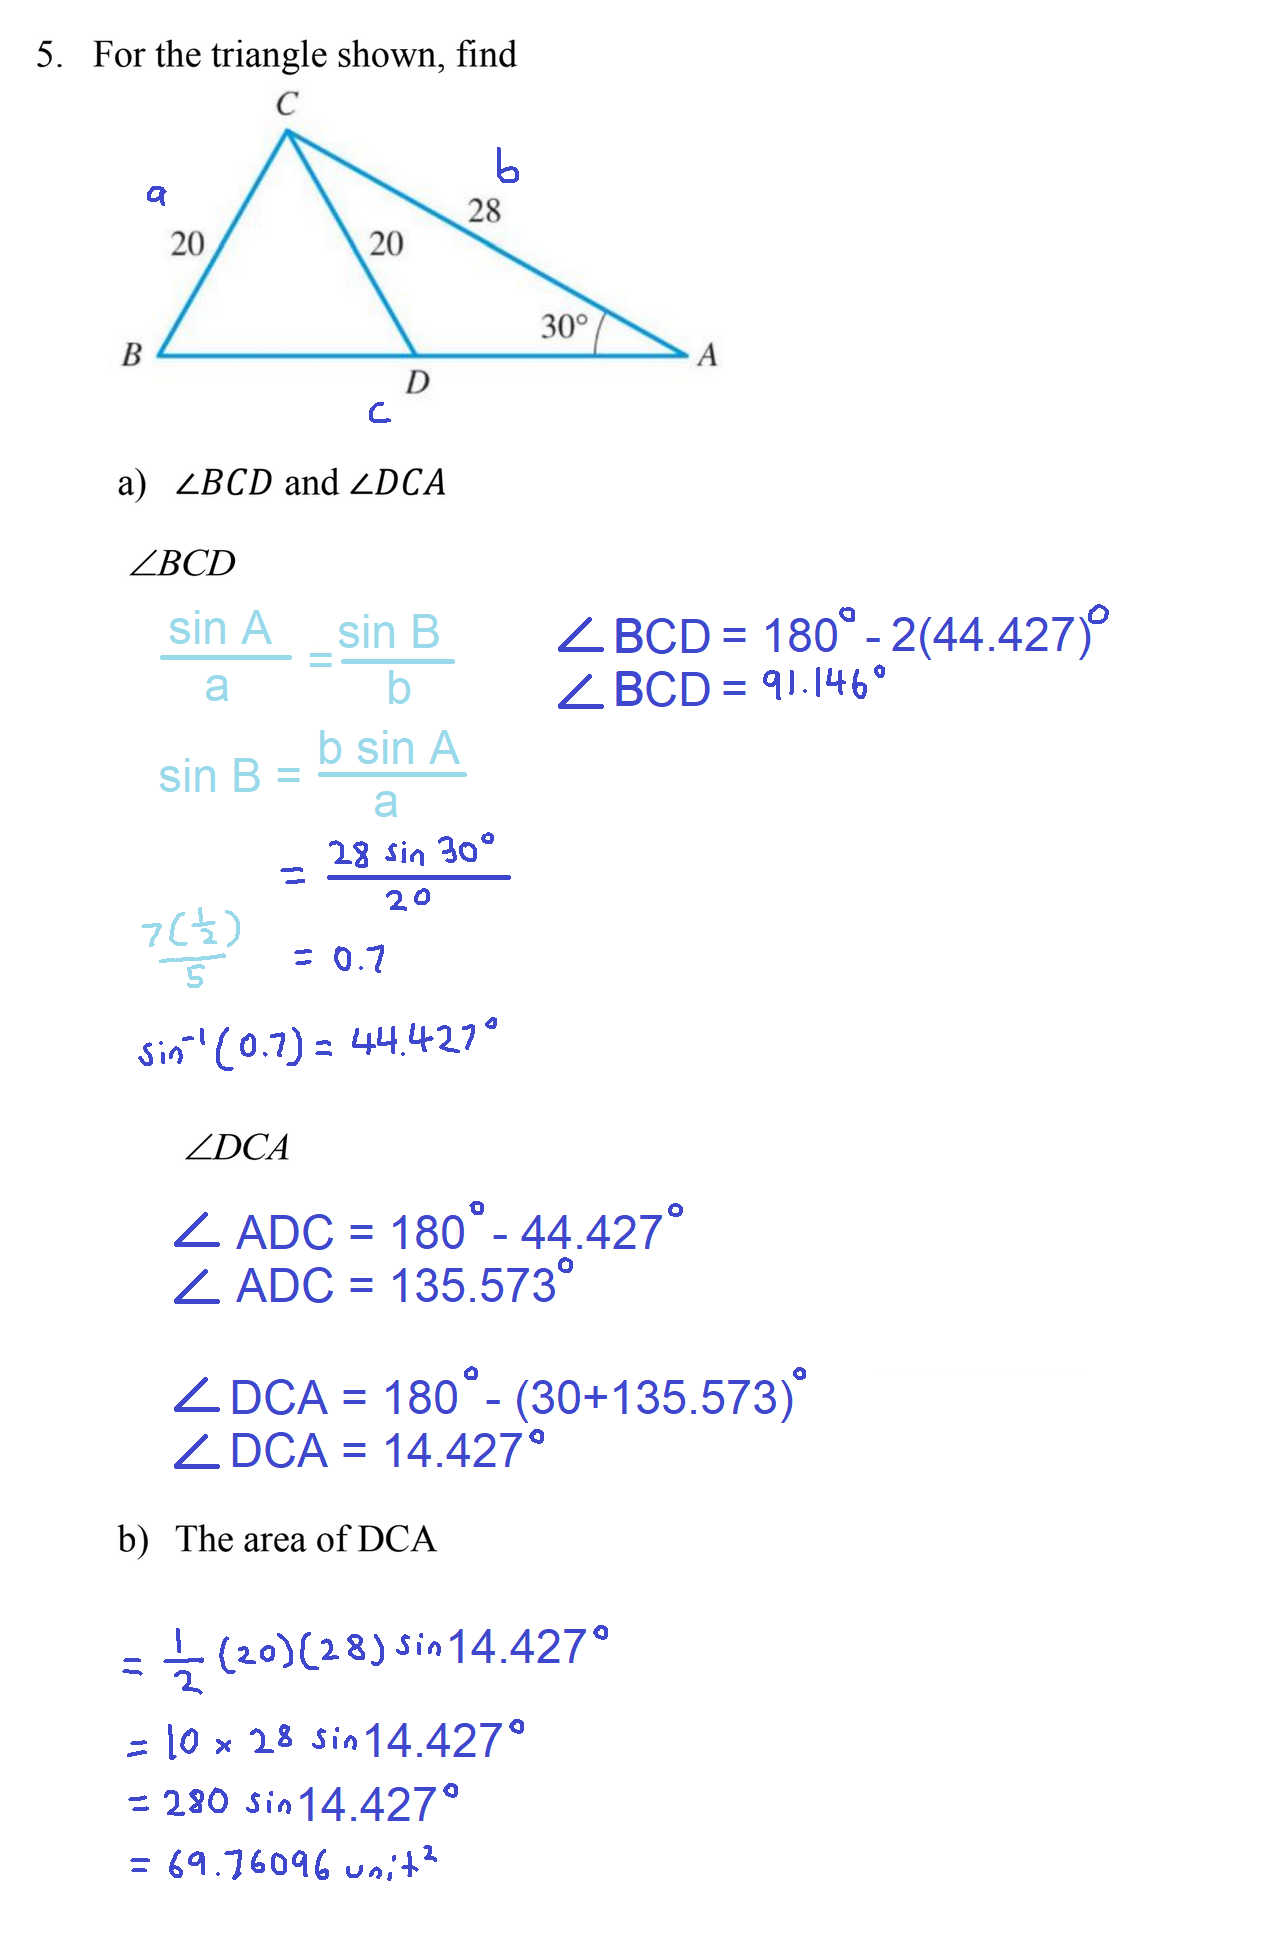 5. For the triangle shown, find
C
b
a
28
20
20
30°
B
A
D
c
a) ∠BCD and ∠DCA
∠BCD
sin A / a = sin B / b
∠ BCD = 180° - 2(44.427)°
∠ BCD = 91.146°
sin B = b sin A / a
= 28 sin 30° / 20
7(1/2) / 5
= 0.7
sin⁻¹(0.7) = 44.427°
∠DCA
∠ ADC = 180° - 44.427°
∠ ADC = 135.573°
∠ DCA = 180° - (30+135.573)°
∠ DCA = 14.427°
b) The area of DCA
= 1/2 (20)(28) sin 14.427°
= 10 × 28 sin 14.427°
= 280 sin 14.427°
= 69.76096 unit²